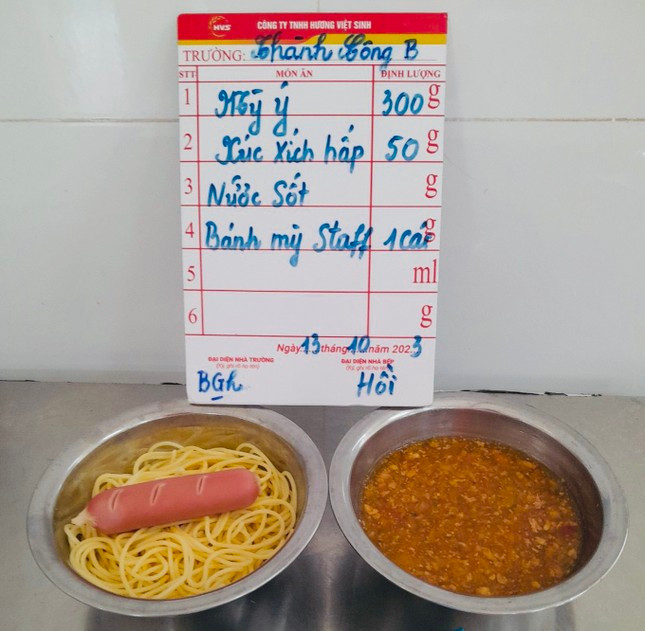 HVS CÔNG TY TNHH HƯƠNG VIỆT SINH
TRƯỜNG: Thành Công B
STT MÓN ĂN ĐỊNH LƯỢNG
1 Mỳ ý 300 g
2 Xúc xích hấp 50 g
3 Nước Sốt g
4 Bánh mỳ Staff 1 cái g
5 ml
6 g
Ngày 13 tháng 10 năm 2023
ĐẠI DIỆN NHÀ TRƯỜNG ĐẠI DIỆN NHÀ BẾP
(Ký, ghi rõ họ tên) (Ký, ghi rõ họ tên)
BGh Hồi